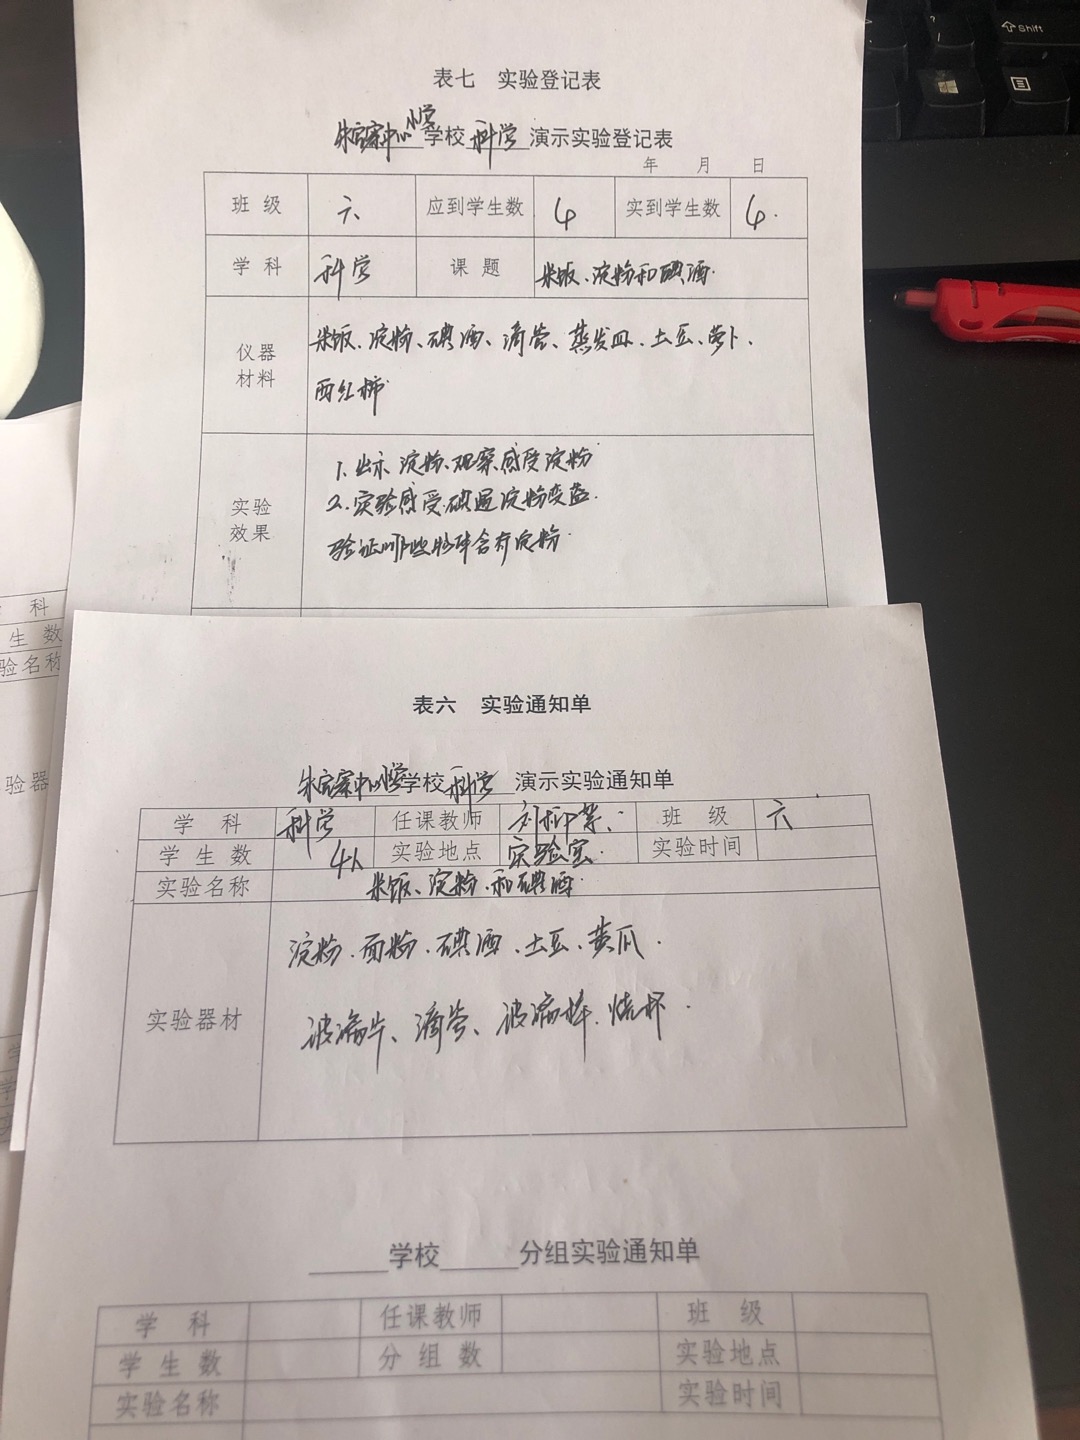 Shift
表七 实验登记表
中心小学学校 科学 演示实验登记表
年 月 日
班 级 六 应到学生数 4 实到学生数 4.
学 科 科学 课 题 米饭、淀粉和碘酒.
仪器材料 米饭、淀粉、碘酒、滴管、蒸发皿、土豆、萝卜、
西红柿
实验效果 1、出示淀粉、观察感受淀粉
2、实验感受碘遇淀粉变蓝.
验证哪些 含有淀粉.
科
生 数
验名称
验器
表六 实验通知单
中心小学学校 科学 演示实验通知单
学 科 科学 任课教师 班 级 六
学 生 数 4人 实验地点 实验室. 实验时间
实验名称 米饭、淀粉和碘酒.
实验器材 淀粉、面粉、碘酒、土豆、黄瓜.
玻璃片、滴管、玻璃棒、烧杯.
学校 分组实验通知单
学 科 任课教师 班 级
学 生 数 分 组 数 实验地点
实验名称 实验时间